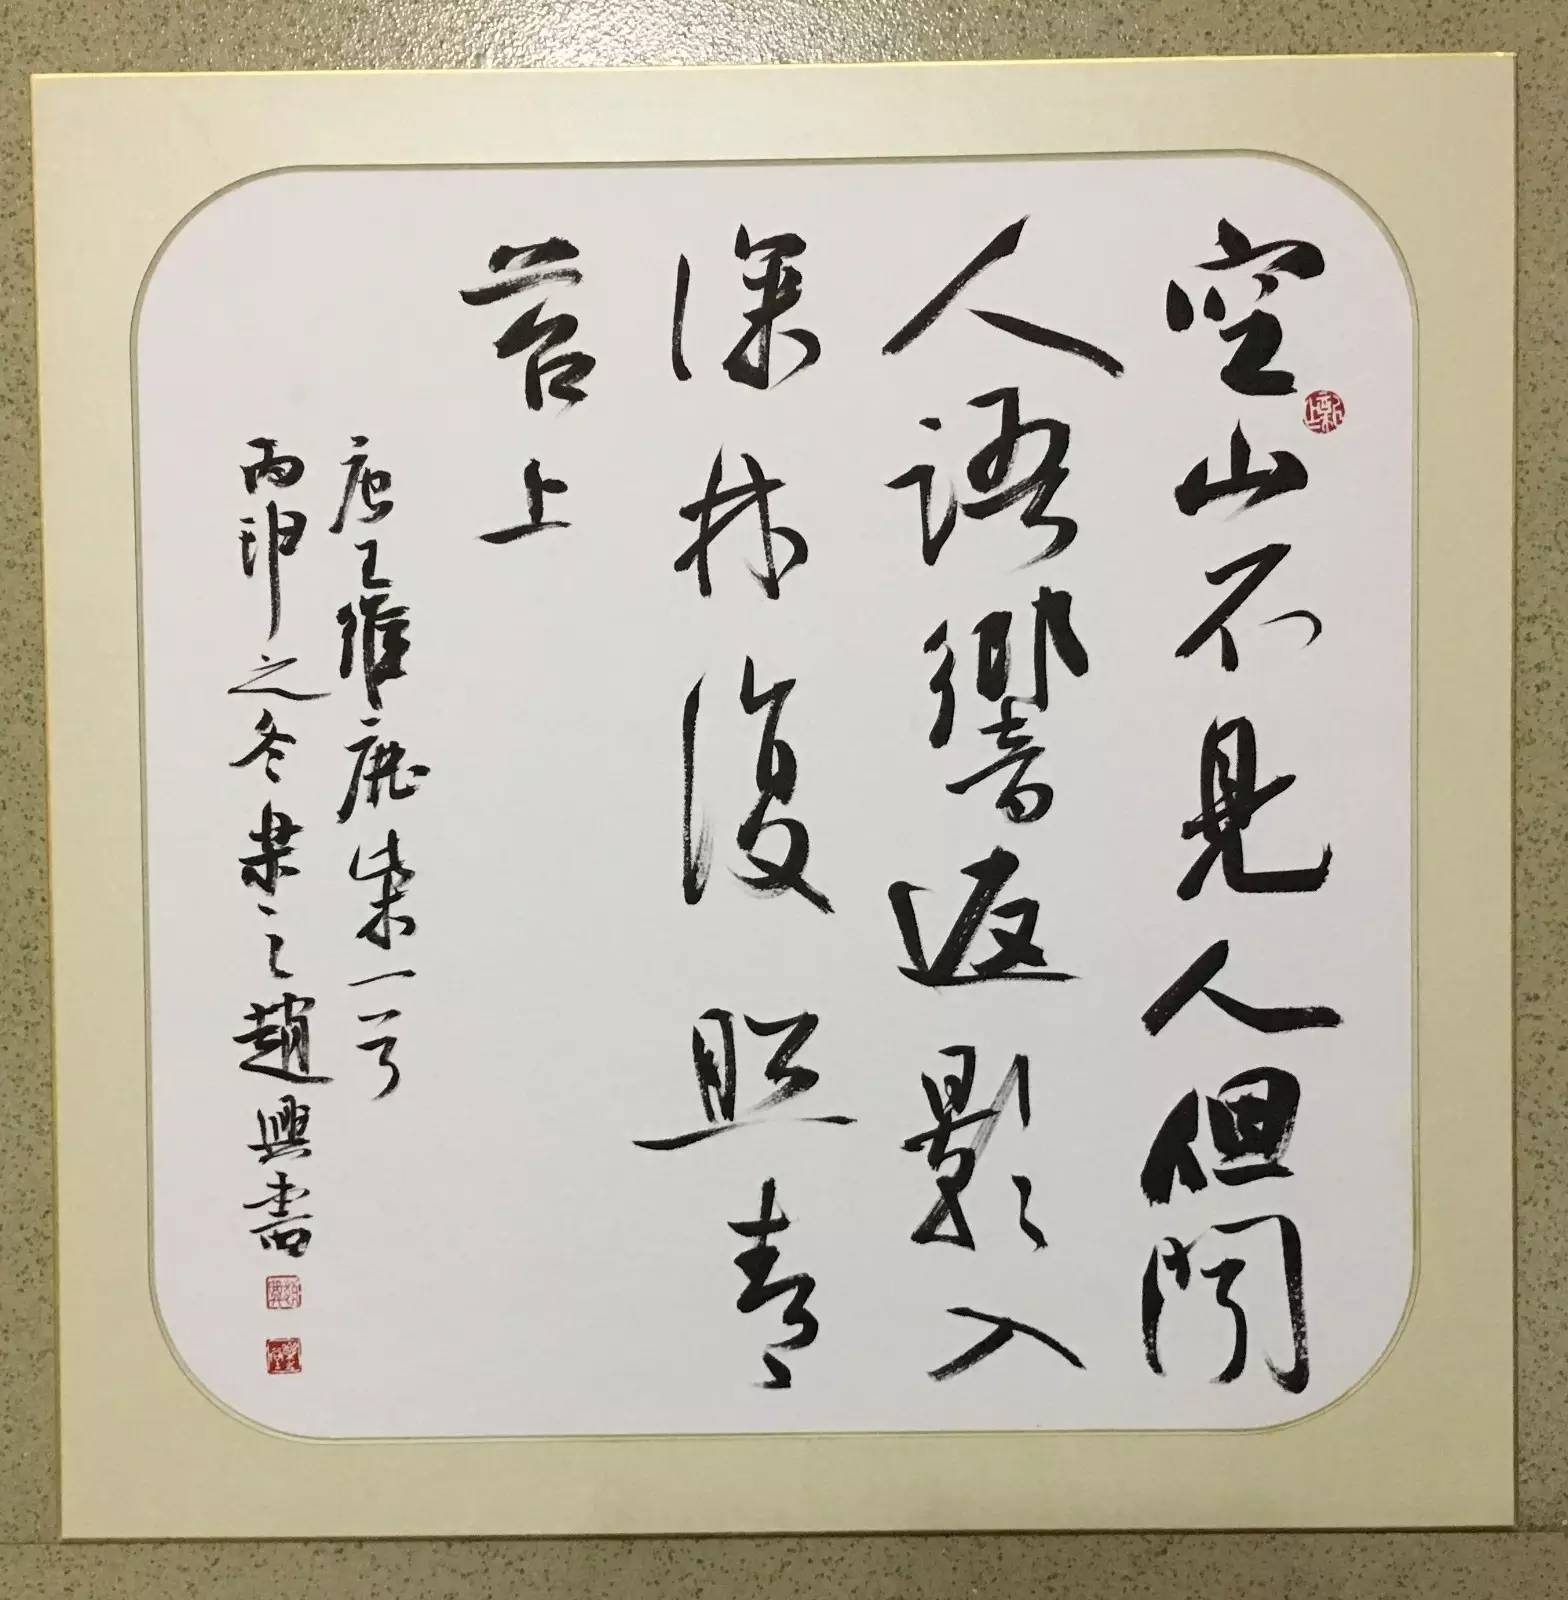 空山不見人但聞
人語響返影入
深林復照青
苔上
唐王維鹿柴一首
丙申之冬 趙興書